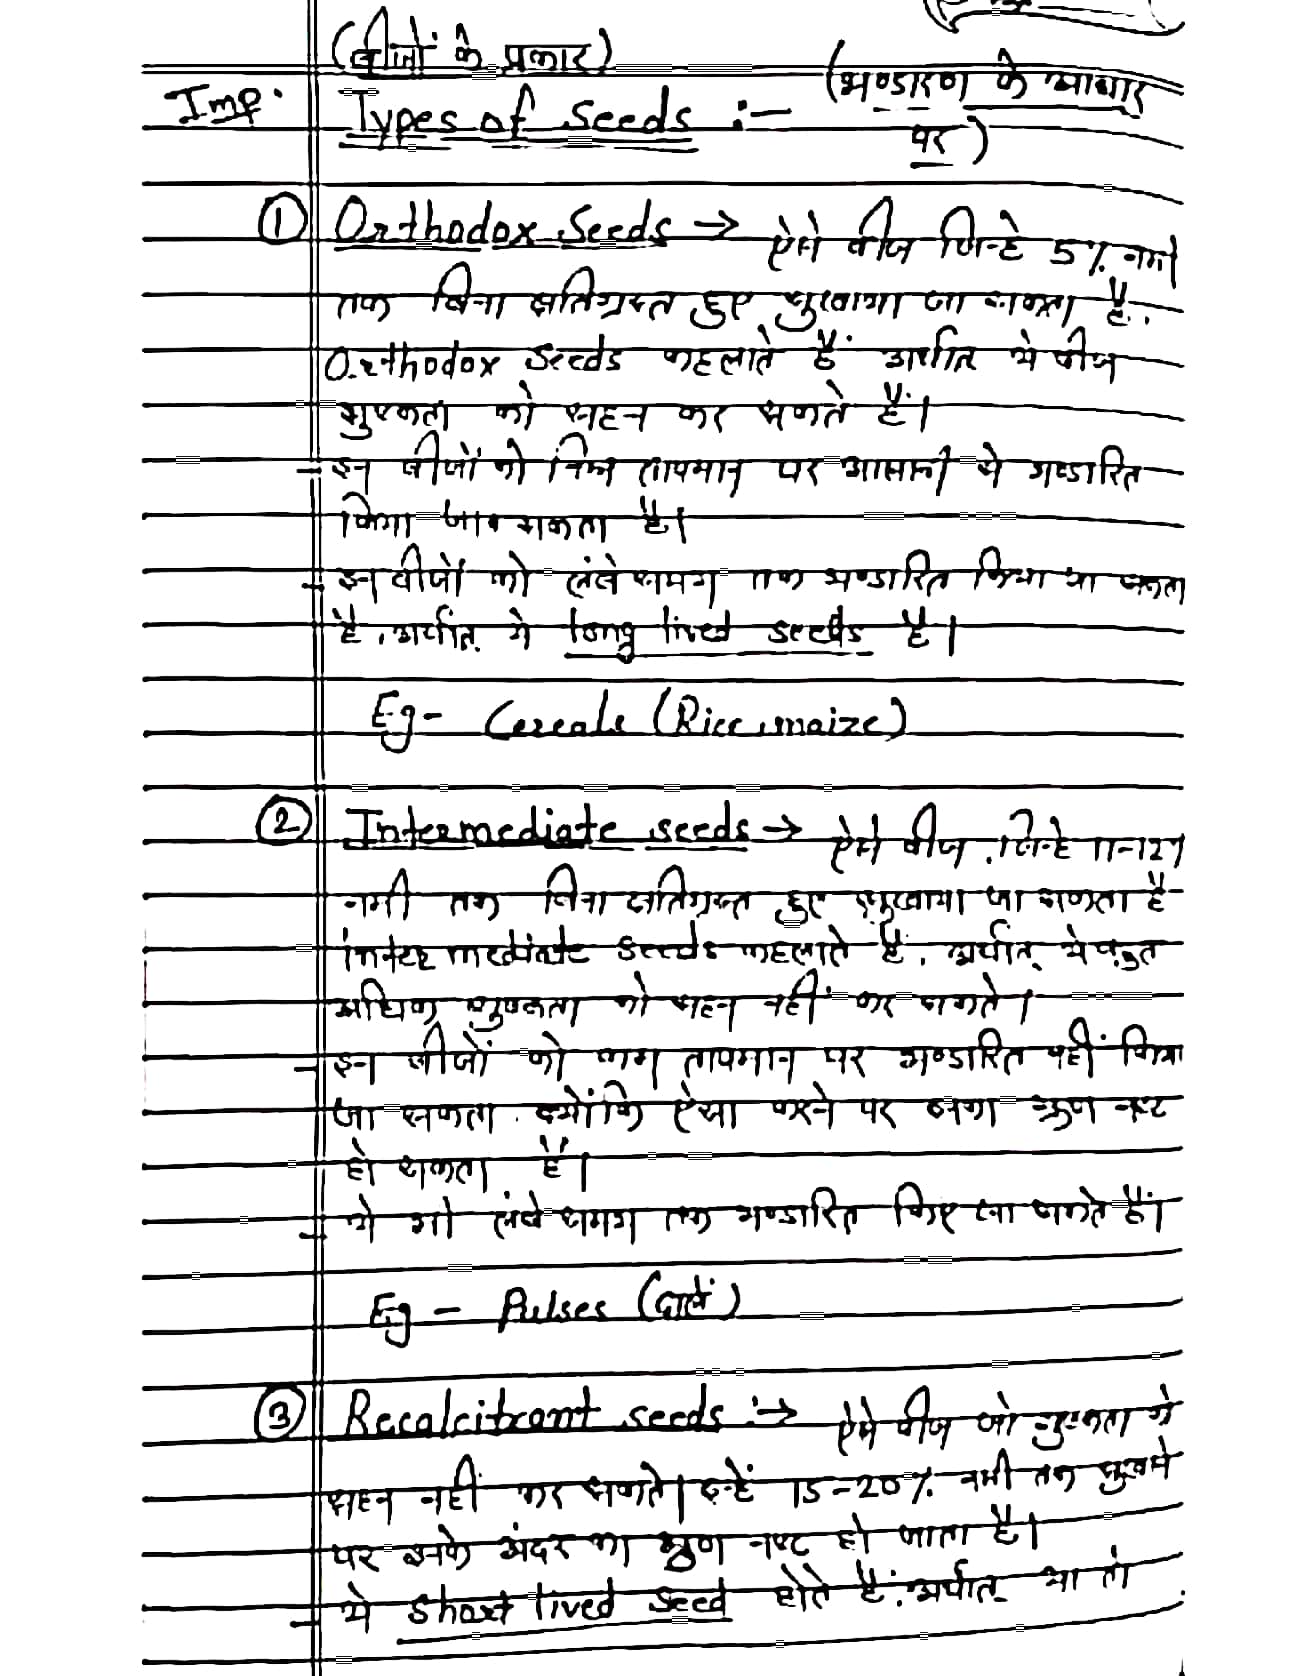 (बीजों के प्रकार)
Imp. Types of Seeds :- (भण्डारण के आधार
पर)
① Orthodox Seeds → ऐसे बीज जिन्हे 5% नमी
तक बिना क्षतिग्रस्त हुए सुखाया जा सकता है.
Orthodox Seeds कहलाते हैं अर्थात ये बीज
शुष्कता को सहन कर सकते हैं।
- इन बीजों को निम्न तापमान पर आसानी से भण्डारित
किया जा सकता है।
- इन बीजों को लंबे समय तक भण्डारित किया जा सकता
है, अर्थात् ये long lived seeds है।
Eg- Cereals (Rice, maize)
② Intermediate seeds → ऐसे बीज, जिन्हे 11-12%
नमी तक बिना क्षतिग्रस्त हुए सुखाया जा सकता है
intermediate seeds कहलाते हैं, अर्थात् ये बहुत
अधिक शुष्कता को सहन नहीं कर सकते।
- इन बीजों को कम तापमान पर भण्डारित नहीं किया
जा सकता. क्योंकि ऐसा करने पर इनका भ्रूण नष्ट
हो सकता है।
- ये भी लंबे समय तक भण्डारित किए जा सकते हैं।
Eg - Pulses (दालें)
③ Recalcitrant seeds :→ ऐसे बीज जो शुष्कता को
सहन नहीं कर सकते। इन्हें 15-20% नमी तक सुखाने
पर इनके अंदर का भ्रूण नष्ट हो जाता है।
- ये Short lived Seed होते हैं, अर्थात् या तो